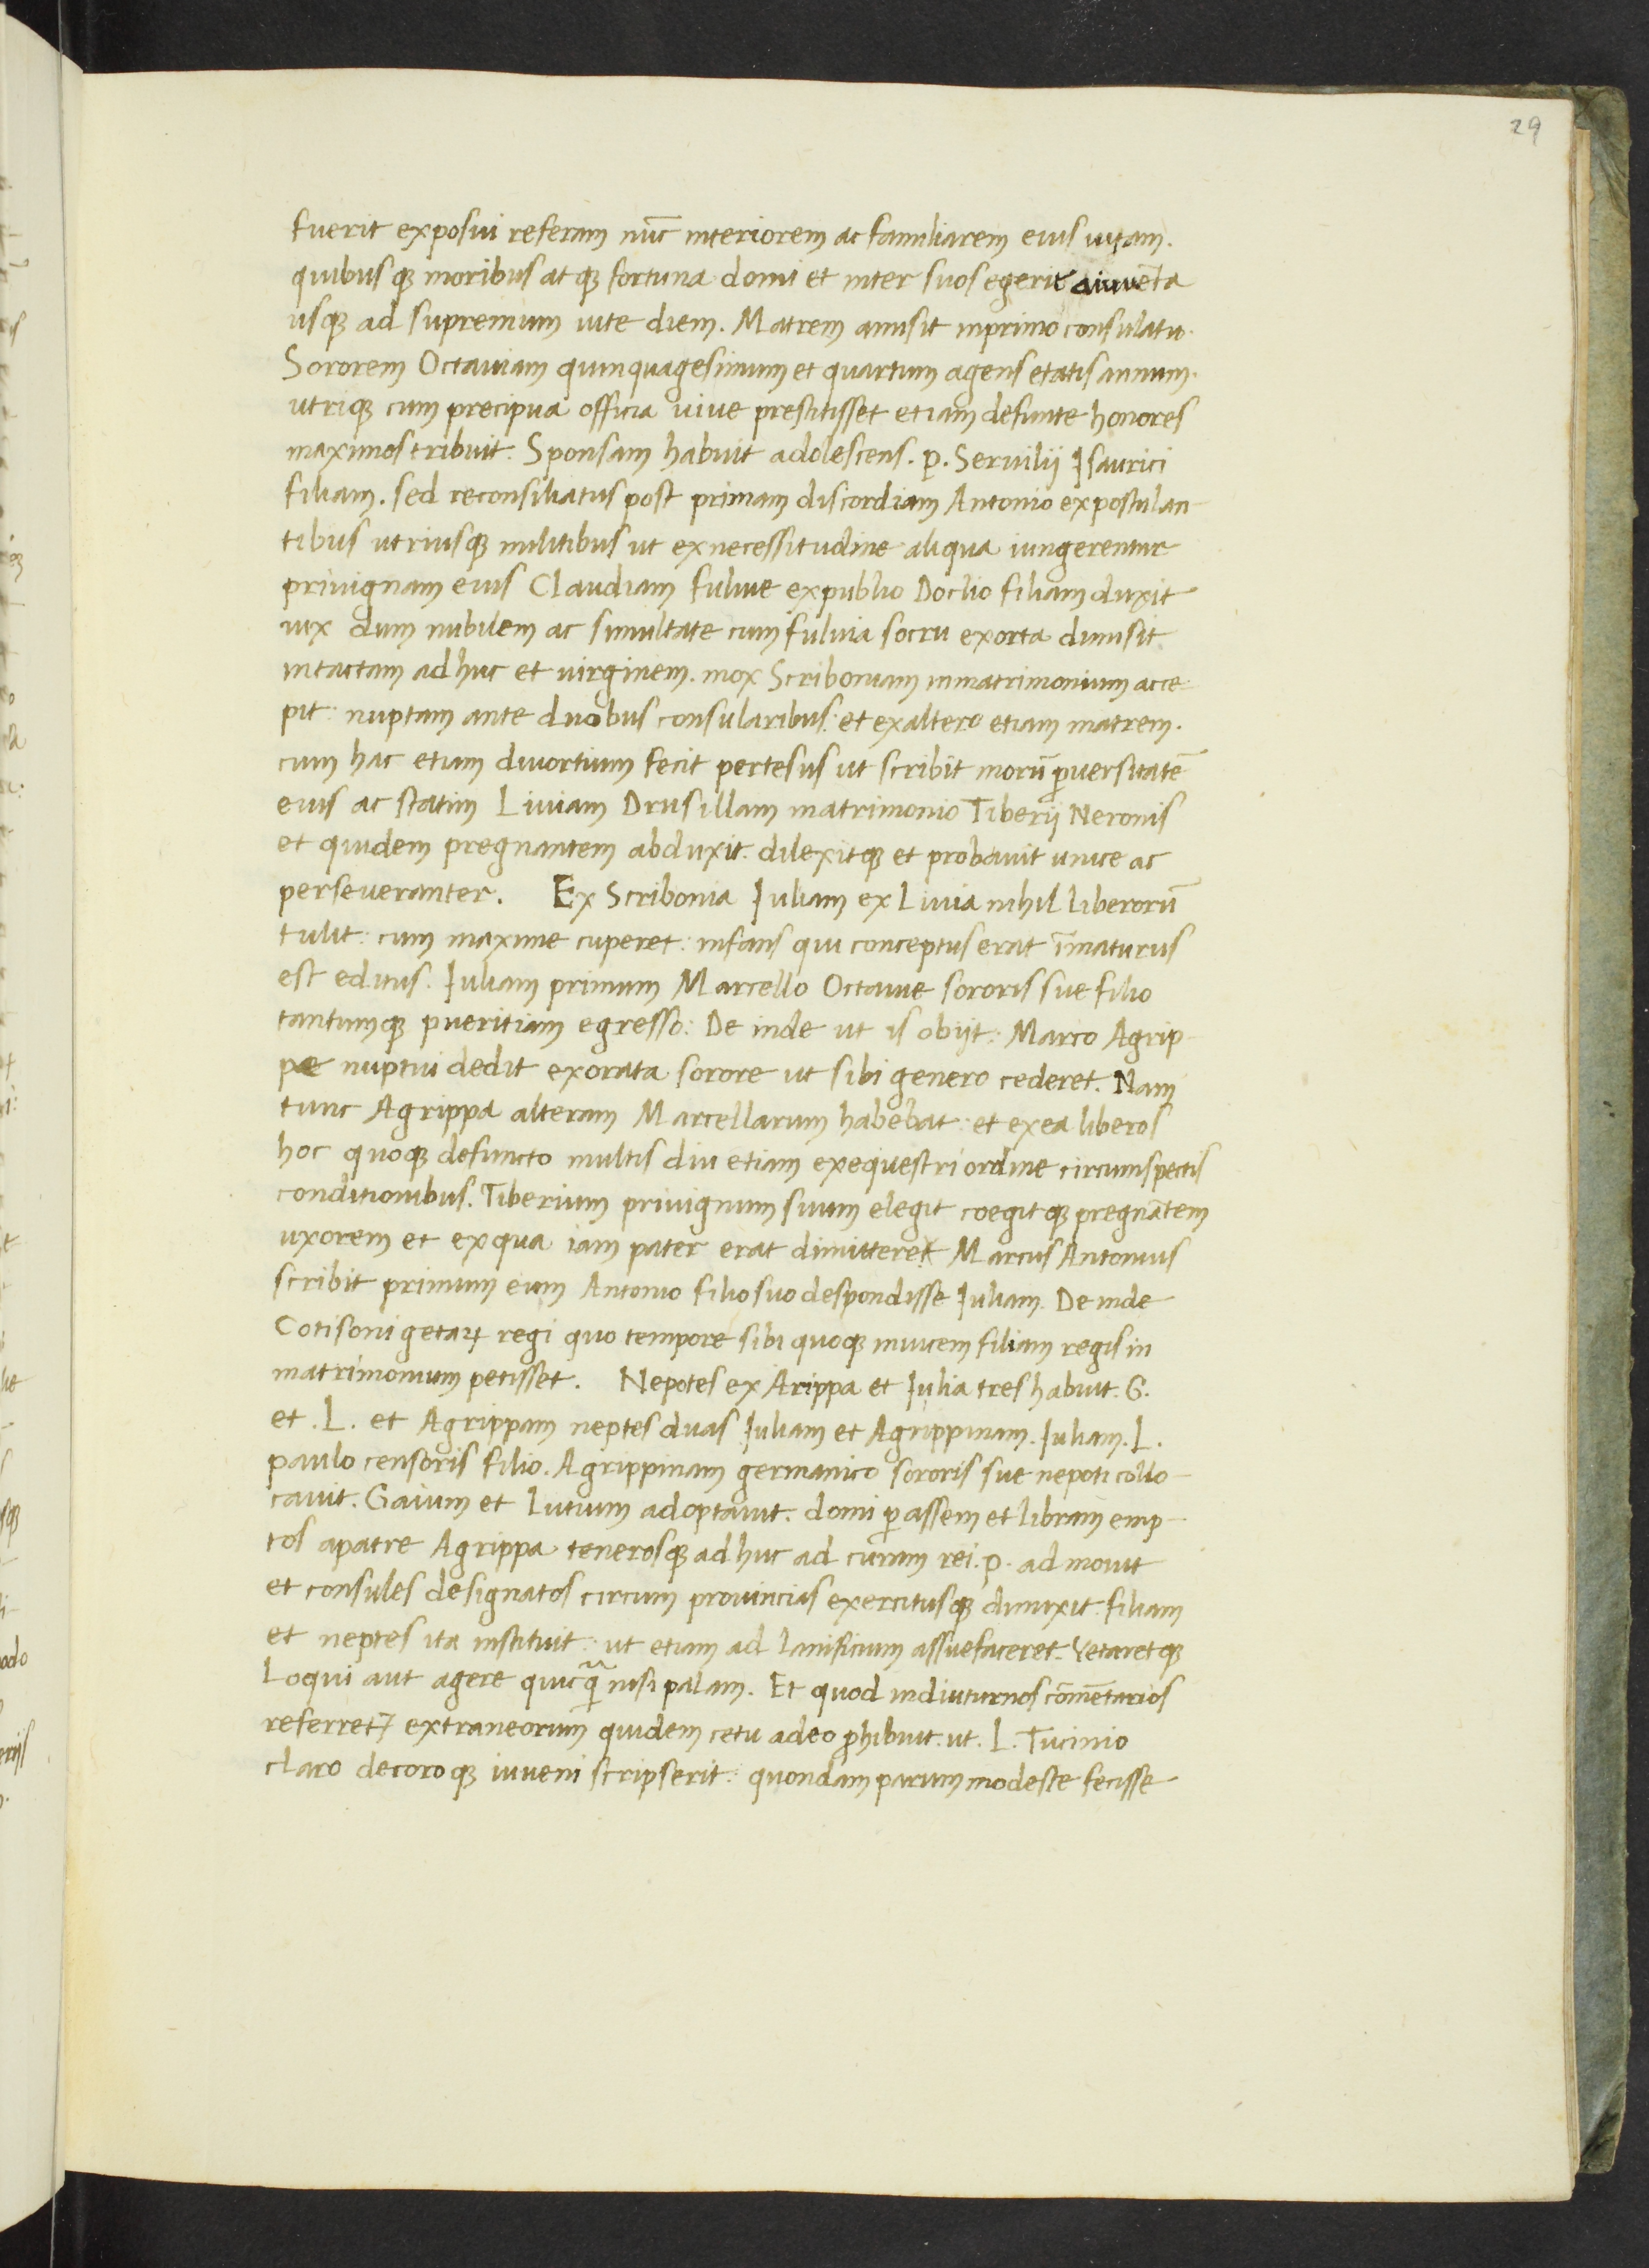 29
fuerit exposui referam nūc interiorem ac familiarem eius uitam.
quibusqꝫ moribus atqꝫ fortuna domi et inter suos egerit aiuuēta
usqꝫ ad supremum uite diem. Matrem amisit inprimo consulatu.
Sororem Octauiam quinquagesimum et quartum agens etatis annum.
utriqꝫ cum precipua officia uiue prestitisset etiam defunte honores
maximos tribuit. Sponsam habuit adolescens. p. Seruilij Isaurici
filiam. sed reconsiliatus post primam discordiam Antonio expostulan-
tibus utriusqꝫ militibus ut exnecessitudine aliqua iungerentur
priuignam eius Claudiam fuluie expublio Doclio filiam duxit
uix dum nubilem ac simultate cum fuluia socru exorta dimisit
intactam adhuc et uirginem. mox Scriboniam inmatrimonium acce-
pit: nuptam ante duobus consularibus: et exaltero etiam matrem.
cum hac etiam diuortium fecit pertesus ut scribit morū ꝑuersitatē
eius ac statim Liuiam Drusillam matrimonio Tiberij Neronis
et quidem pregnantem abduxit. dilexitqꝫ et probauit unice ac
perseueranter. Ex Scribonia Iuliam ex Liuia nihil liberorū
tulit: cum maxime cuperet: infans qui conceptus erat īmaturus
est editus. Iuliam primum Marcello Octauie sororis sue filio
tantumqꝫ pueritiam egresso: De inde ut is obijt: Marco Agrip-
pe nuptui dedit exorata sorore ut sibi genero cederet. Nam
tunc Agrippa alteram Marcellarum habebat: et exea liberos
hoc quoqꝫ defuncto multis diu etiam exequestri ordine circumspectis
conditionibus. Tiberium priuignum suum elegit coegitqꝫ pregnātem
uxorem et exqua iam pater erat dimittere Marcus Antonius
scribit primum eum Antonio filio suo despondisse Iuliam. De inde
Cotisoni getaꝝ regi quo tempore sibi quoqꝫ inuicem filiam regis in
matrimonium petisset. Nepotes ex Arippa et Iulia tres habuit. G.
et. L. et Agrippam neptes duas Iuliam et Agrippinam. Iuliam. L.
paulo censoris filio. Agrippinam germanico sororis sue nepoti collo-
cauit. Gaium et lutium adoptauit. domi ꝑ assem et libram emp-
tos apatre Agrippa tenerosqꝫ adhuc ad curam rei. p. admouit
et consules designatos circum prouincias exercitusqꝫ dimixit: filiam
et neptes ita instituit: ut etiam ad lanificium assuefaceret. Vetaretqꝫ
Loqui aut agere quicq̄ nisi palam. Et quod indiuturnos cōmētarios
referret⁊ extraneorum quidem cetu adeo ꝓhibuit. ut. L. Tucinio
claro decoroqꝫ iuueni scripserit: quondam parum modeste fecisse